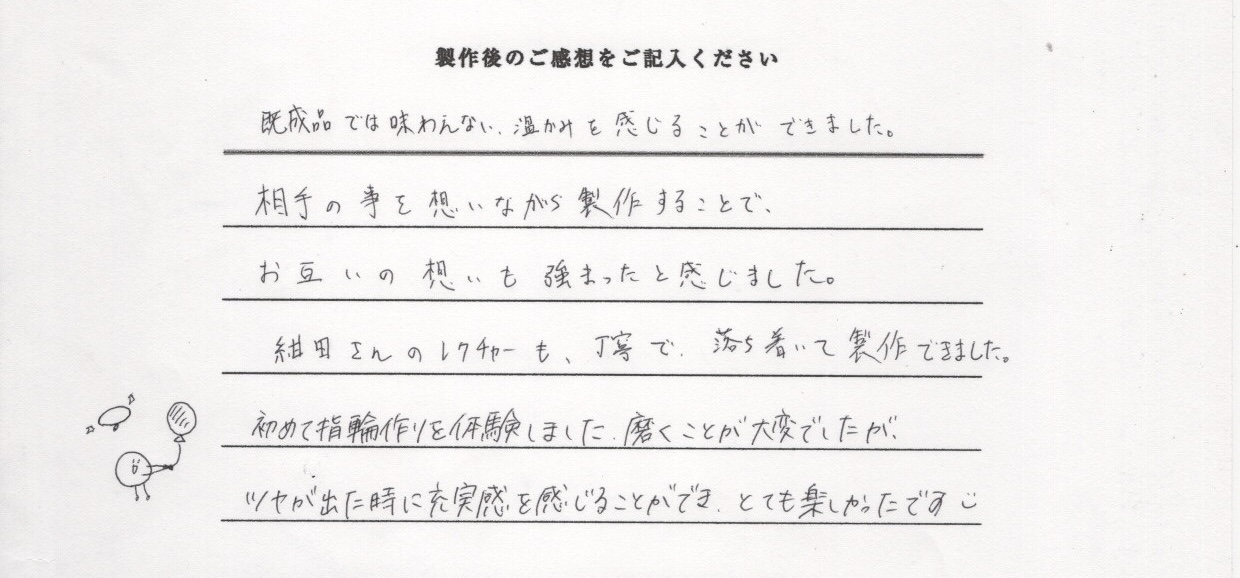 製作後のご感想をご記入ください
既成品では味わえない、温かみを感じることができました。
相手の事を想いながら製作することで、
お互いの想いも強まったと感じました。
紺田さんのレクチャーも、丁寧で、落ち着いて製作できました。
初めて指輪作りを体験しました、磨くことが大変でしたが、
ツヤが出た時に充実感を感じることができ、とても楽しかったです